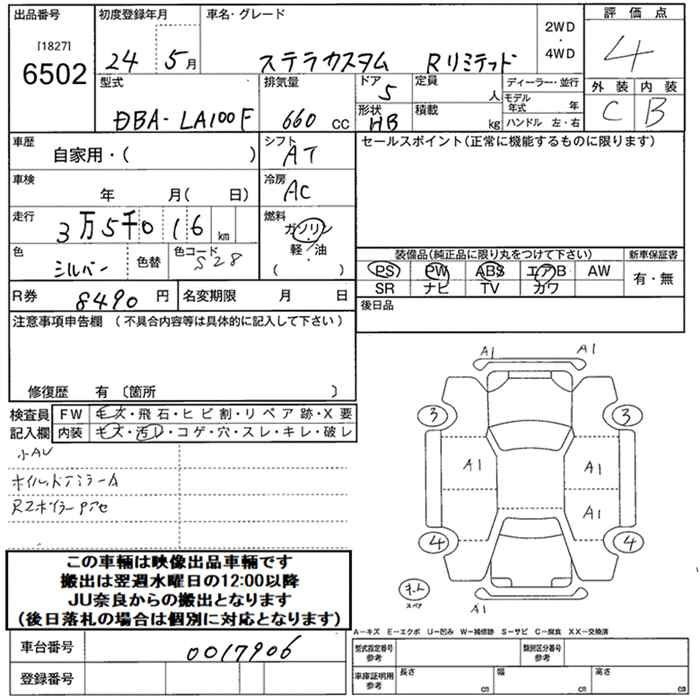 出品番号 初度登録年月 車名・グレード 評価点
[1827] 6502 24年 5月 ステラカスタム Rリミテッド 2WD・4WD 4
型式 排気量 ドア 定員 ディーラー・並行 外装 内装
DBA-LA100F 660cc 5 人 モデル年式 年 C B
形状 積載 HB kg ハンドル 左・右
車歴 自家用・( ) シフト AT セールスポイント(正常に機能するものに限ります)
車検 年 月( 日) 冷房 AC
走行 3万5千016km 燃料 ガソリン・軽油 ( )
色 シルバー 色替 色コード S28
装備品(純正品に限り丸をつけて下さい) 新車保証書
PS PW ABS エアB AW 有・無
SR ナビ TV カワ
R券 8490円 名変期限 月 日 後日品
注意事項申告欄 (不具合内容等は具体的に記入して下さい)
修復歴 有 〔箇所 〕
検査員記入欄 FW キズ・飛石・ヒビ割・リペア跡・X要
内装 キズ・汚レ・コゲ・穴・スレ・キレ・破レ
小AU
A1 A1
3 3
A1 A1
A1
4 4
スペア A1
この車輌は映像出品車輌です
搬出は翌週水曜日の12:00以降
JU奈良からの搬出となります
(後日落札の場合は個別に対応となります)
A－キズ E－エクボ U－凹み W－補修跡 S－サビ C－腐食 XX－交換済
車台番号 0017906 型式指定番号 参考 類別区分番号 参考
登録番号 車庫証明用 参考 長さ cm 幅 cm 高さ cm